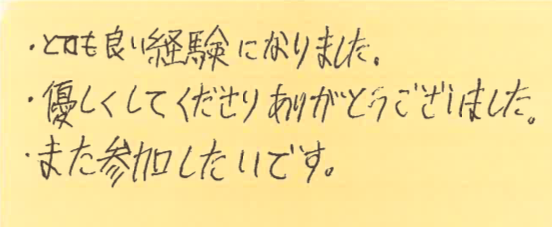 ・とても良い経験になりました。
・優しくしてくださりありがとうございました。
・また参加したいです。